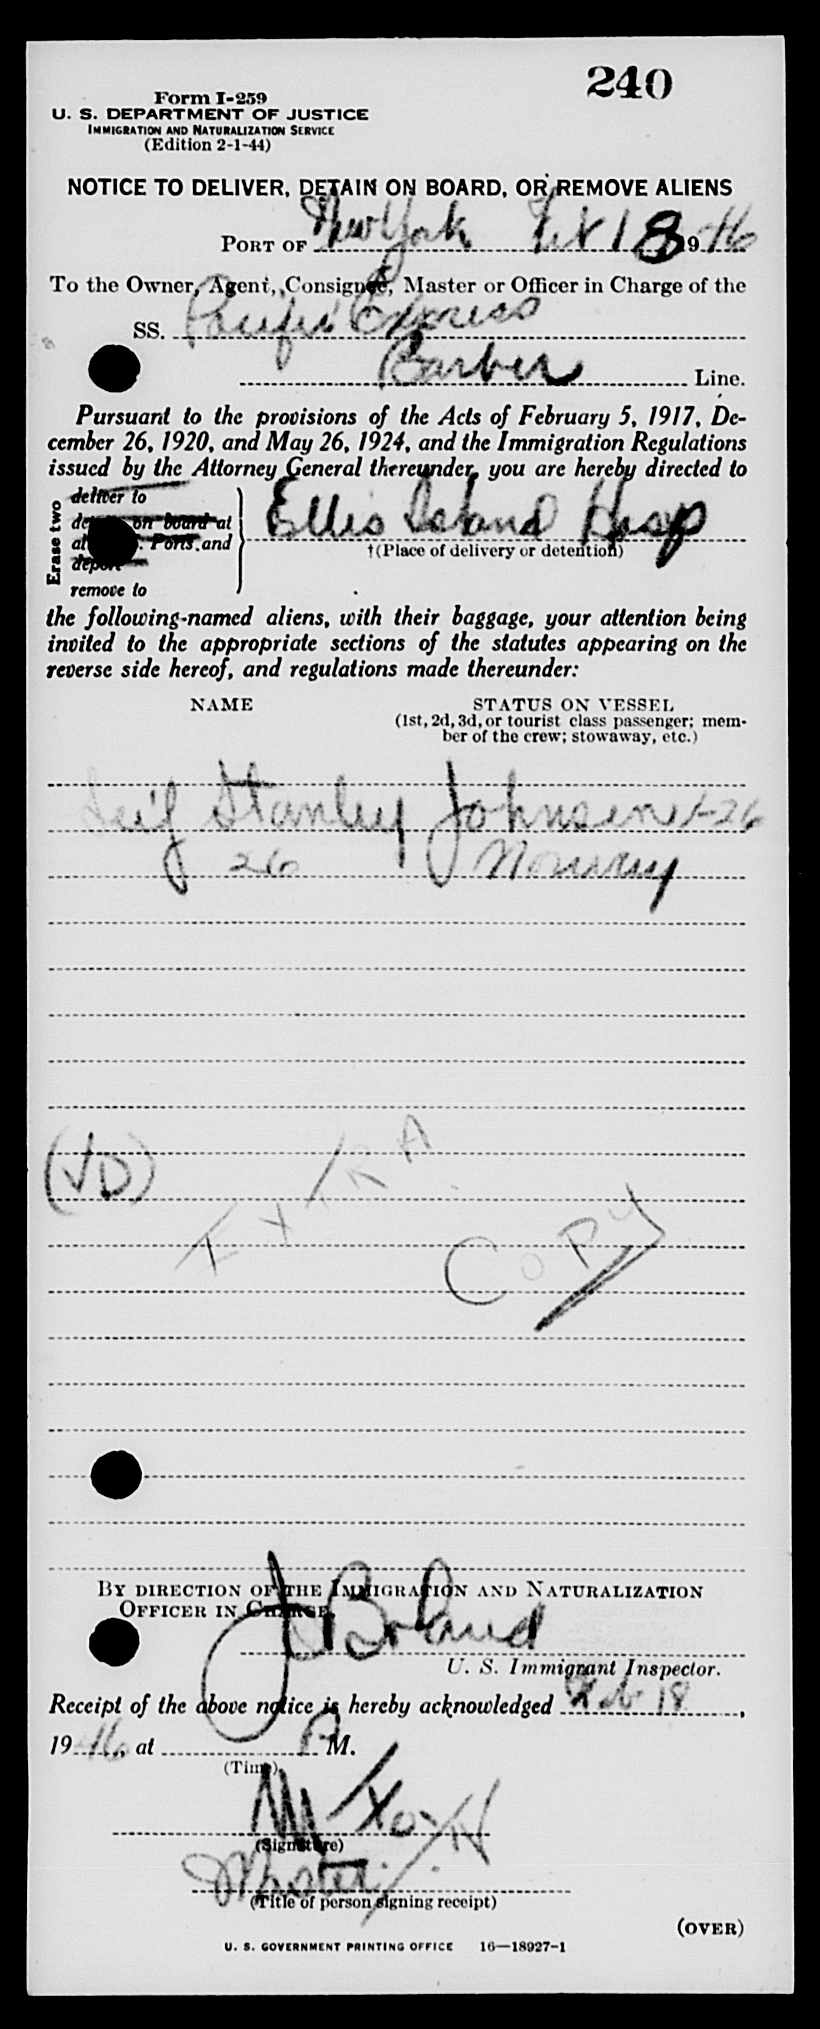 240
Form I-259
U. S. DEPARTMENT OF JUSTICE
IMMIGRATION AND NATURALIZATION SERVICE
(Edition 2-1-44)
NOTICE TO DELIVER, DETAIN ON BOARD, OR REMOVE ALIENS
PORT OF New York Feb 18 1946
To the Owner, Agent, Consignee, Master or Officer in Charge of the
SS. Pacific Express
Barber Line.
Pursuant to the provisions of the Acts of February 5, 1917, De-
cember 26, 1920, and May 26, 1924, and the Immigration Regulations
issued by the Attorney General thereunder, you are hereby directed to
Erase two
deliver to
on board at
at Ports and
deport
remove to
Ellis Island Hosp
†(Place of delivery or detention)
the following-named aliens, with their baggage, your attention being
invited to the appropriate sections of the statutes appearing on the
reverse side hereof, and regulations made thereunder:
NAME STATUS ON VESSEL
(1st, 2d, 3d, or tourist class passenger; mem-
ber of the crew; stowaway, etc.)
Leif Stanley Johnsen 1-26
26 Norway
(VD)
EXTRA
COPY
BY DIRECTION OF THE IMMIGRATION AND NATURALIZATION
OFFICER IN CHARGE,
J Boland
U. S. Immigrant Inspector.
Receipt of the above notice is hereby acknowledged Feb 18,
1946, at A M.
(Time)
(Signature)
Master
(Title of person signing receipt)
(OVER)
U. S. GOVERNMENT PRINTING OFFICE 16—18927-1